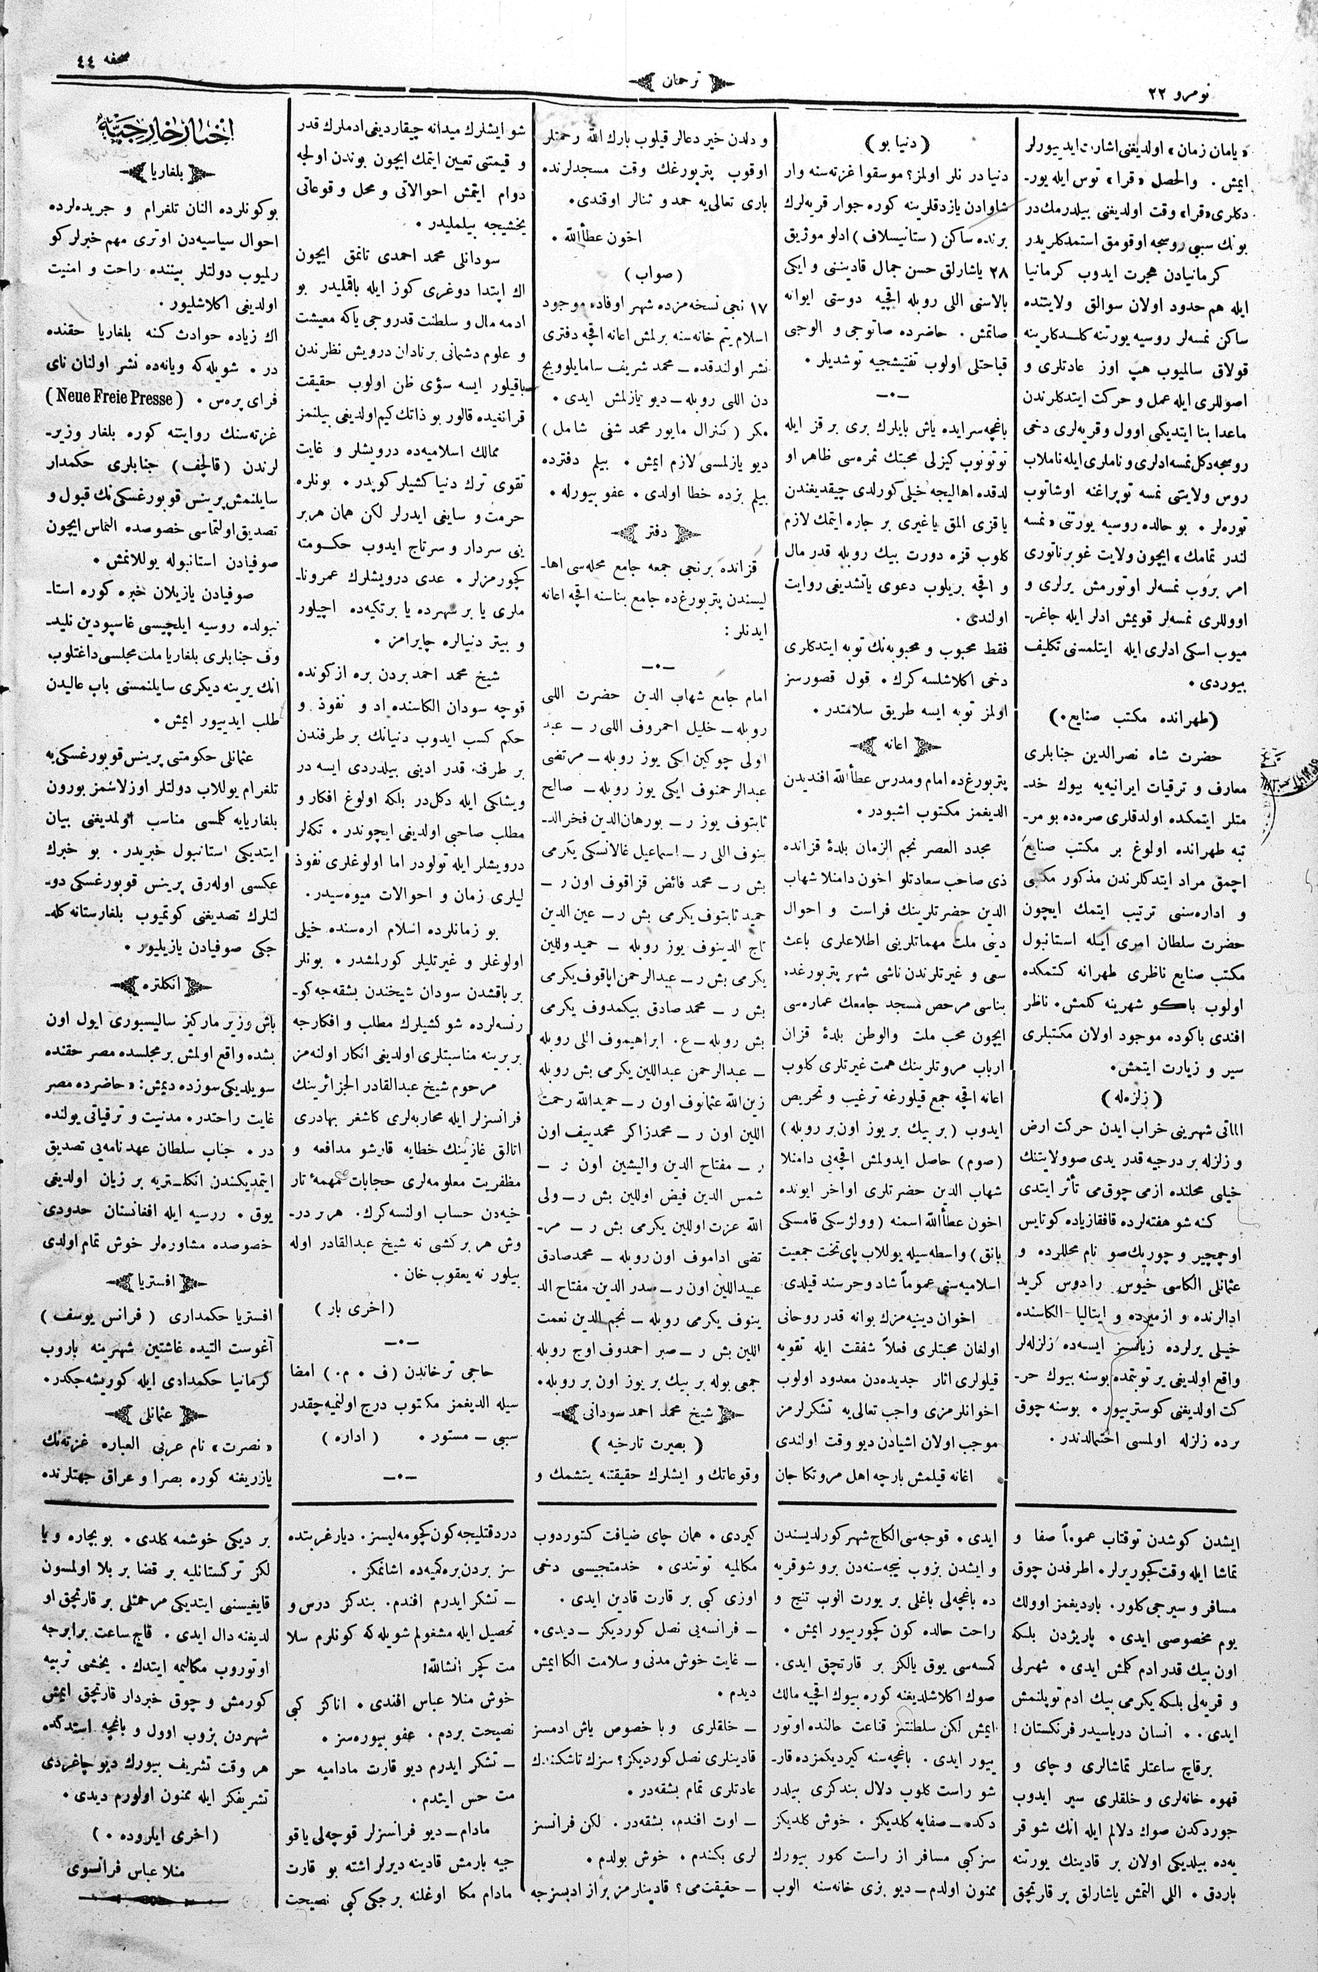 نومرو ٢٢
ترجمان
صحفه ٤٤
«یامان زمان» اولدیغی اشارت ایدییورلر
ایمش. والحصل «قرا» توس ایله یور-
دکلری «قرا» وقت اولدیغی بیلدرمك در
بونك سببی روسجه اوقومق استمدکلریدر
کرمانیادن هجرت ایدوب کرمانیا
ایله هم حدود اولان سوالق ولایتنده
ساکن نمسه‌لر روسیه یورتنه کلسه‌دکارینه
قولاق سالمیوب هپ اوز عادتلری و
اصوللری ایله عمل و حرکت ایتدکلرندن
ماعدا بنا ایتدیکی اوول و قریه‌لری دخی
روسجه دکل نمسه ادلری و ناملری ایله ناملاب
روس ولایتنی نمسه توپراغنه اوشاتوب
توره‌لر. بو حالده روسیه یورتنی «نمسه
لندر تمامك» ایچون ولایت غوبرناتوری
امر بروب نمسه‌لر اوتورمش یرلری و
اووللری نمسه‌لر قویمش ادلر ایله جاغر-
میوب اسکی ادلری ایله ایتلمسنی تکلیف
بیوردی.
(طهرانده مکتب صنایع.)
حضرت شاه نصرالدین جنابلری
معارف و ترقیات ایرانیه‌یه بیوك خد-
متلر ایتمکده اولدقلری صره‌ده بو مر-
تبه طهرانده اولوغ بر مکتب صنایع
اچمق مراد ایتدکلرندن مذکور مکتبی
و اداره‌سنی ترتیب ایتمك ایچون
حضرت سلطان امری ایله استانبول
مکتب صنایع ناظری طهرانه کتمکده
اولوب باکو شهرینه کلمش. ناظر
افندی باکوده موجود اولان مکتبلری
سیر و زیارت ایتمش.
(زلزله)
الماتی شهرینی خراب ایدن حرکت ارض
و زلزله بر درجیه قدر یدی صوولایتنك
خیلی محلنده ازمی چوق می تأثر ایتدی
کنه شو هفته‌لرده قافقازیاده کوتایس
اوجمچیر و چوریك صو نام محللرده و
عثمانلی الکاسی خیوس رادوس کرید
ادالرنده و ازمیرده و ایتالیا الکاسنده
خیلی یرلرده زیانسز ایسه‌ده زلزله‌لر
واقع اولدیغی یر توبتمده بوسنه بیوك حر-
کت اولدیغنی کوستریبور. بوسنه چوق
یرده زلزله اولمسی احتمالدندر.
(دنیا بو)
دنیا در نلر اولمز؟ موسقوا غزته‌سنه وار
شاوادن یازدقلرینه کوره جوار قریه‌لرك
برنده ساکن (ستانیسلاف) ادلو موژیق
٢٨ یاشارلق حسن جمال قادیننی و ایکی
بالاسنی اللی روبله اقچیه دوستی ایوانه
صاتمش. حاضرده صاتوجی و الوجی
قباحتلی اولوب تفتیشجیه توشدیلر.
—•—
باغچه‌سرایده یاش بایلرك بری بر قز ایله
توتونوب کیزلی محبتك ثمره‌سی ظاهر او
لدقده اهالیجه خیلی کورلدی چیقدیغندن
یاقزی المق یاغیری بر چاره ایتمك لازم
کلوب قزه دورت بیك روبله قدر مال
و اقچه بریلوب دعوی یاتشدیغی روایت
اولندی.
فقط محبوب و محبوبه‌نك توبه ایتدکلری
دخی اکلاشلسه کرك. قول قصورسز
اولمز توبه ایسه طریق سلامتدر.
اعانه
پتربورغ‌ده امام و مدرس عطأالله افندیدن
الدیغمز مکتوب اشبودر.
مجدد العصر نجم الزمان بلدۀ قزانده
ذی صاحب سعادتلو اخون دامنلا شهاب
الدین حضرتلرینك فراست و احوال
دینی ملت مهماتلرینی اطلاعلری باعث
سعی و غیرتلرندن ناشی شهر پتربورغده
بناسی مرحص مسجد جامعك عماره‌سی
ایچون محب ملت والوطن بلدۀ قزان
ارباب مروتلرینك همت غیرتلری کلوب
اعانه اقچه جمع قیلورغه ترغیب و تحریص
ایدوب (بر بیك بر یوز اون بر روبله)
(صوم) حاصل ایدولمش اقچه‌یی دامنلا
شهاب الدین حضرتلری اواخر ایونده
اخون عطأالله اسمنه (وولژسکی قامسکی
بانق) واسطه سیله یوللاب پای تخت جمعیت
اسلامیه‌سنی عموماً شاد و خرسند قیلدی
اخوان دینیه مزك بوانه قدر روحانی
اولغان محبتلری فعلاً شفقت ایله تقویه
قیلولری اثار جدیده‌دن معدود اولوب
اخوانلرمزی واجب تعالی‌یه تشکرلرمز
موجب اولان اشیادن دیو وقت اولندی
اعانه قیلمش بارچه اهل مروتکا جان
و دلدن خیر دعالر قیلوب بارك الله رحمتلر
اوقوب پتربورغك وقت مسجدلرنده
باری تعالی‌یه حمد و ثنالر اوقندی.
اخون عطأالله.
(صواب)
١٧ نجی نسخه مزده شهر اوفاده موجود
اسلام یتم خانه‌سنه برلمش اعانه اقچه دفتری
نشر اولندقده — محمد شریف سامایلوویچ
دن اللی روبله — دیو یازلمش ایدی.
مکر (کنرال مایور محمد شفی شامل)
دیو یازلمسی لازم ایمش. بیلم دفترده
بیلم بزده خطا اولدی. عفو بیورله.
دفتر
قزانده برنجی جمعه جامع محله‌سی اها-
لیسندن پتربورغ‌ده جامع بناسنه اقچه اعانه
ایدنلر:
—•—
امام جامع شهاب الدین حضرت اللی
روبله — خلیل احمروف اللی ر — عبد
اولی چوکین ایکی یوز روبله — مرتضی
عبدالرحمنوف ایکی یوز روبله — صالح
ثابتوف یوز ر — بورهان الدین فخرالد-
ینوف اللی ر — اسماعیل غالانسکی یکرمی
بش ر — محمد فائض قزاقوف اون ر —
حمید ثابتوف یکرمی بش ر — عین الدین
تاج الدینوف یوز روبله — حمید وللین
یکرمی بش ر — عبدالرحمن اپاقوف یکرمی
بش ر — محمد صادق بیکمدوف یکرمی
بش روبله — ع. ابراهیموف اللی روبله
— عبدالرحمن عبداللین یکرمی بش روبله
زین الله عثمانوف اون ر — حمیدالله رحمت
اللین اون ر — محمدزاکر محمدییف اون
ر — مفتاح الدین والیشین اون ر —
شمس الدین فیض اوللین بش ر — ولی
الله عزت اوللین یکرمی بش ر — مر-
تضی اداموف اون روبله — محمدصادق
عبیداللین اون ر — صدر الدین مفتاح الد
ینوف یکرمی روبله — نجم الدین نعمت
اللین بش ر — صبر احمدوف اوچ روبله
جمعی بوله بر بیك بر یوز اون بر روبله.
شیخ محمد احمد سودانی
(بصیرت تاریخیه)
وقوعاتك و ایشلرك حقیقتنه یتشمك و
شو ایشلرك میدانه چیقاردیغی ادملرك قدر
و قیمتنی تعیین ایتمك ایچون بوندن اولجه
دوام ایتمش احوالاتی و محل و قوعاتی
یخشیجه بیلملیدر.
سودانلی محمد احمدی تانتمق ایچون
اك ابتدا دوغری کوز ایله باقملیدر بو
ادمه مال و سلطنت قدروجی یاکه معیشت
و علوم دشمانی برنادان درویش نظرندن
باقیلور ایسه سؤی ظن اولوب حقیقت
قرانغیده قالور بو ذاتك کیم اولدیغی بیلنمز
ممالك اسلامیه‌ده درویشلر و غایت
تقوی ترك دنیا کشیلر کوپدر. بونلره
حرمت و سایغی ایدرلر لکن همان هربر
ینی سردار و سرتاج ایدوب حکومته
کچورمزلر. عدی درویشلرك عمرونا-
ملری یا بر شهرده یا برتکیه‌ده اچیلور
و بیتر دنیالره چایرامز.
شیخ محمد احمد بردن بره ازکونده
قوچه سودان الکاسنده اد و نفوذ و
حکم کسب ایدوب دنیانك بر طرفندن
بر طرفنه قدر ادینی بیلدردی ایسه در
ویشلکی ایله دکل در بلکه اولوغ افکار و
مطلب صاحبی اولدیغی ایچوندر. تکه‌لر
درویشلر ایله تولودر اما اولوغلری نفوذ
لیلری زمان و احوالات میوه سیدر.
بو زمانلرده اسلام اره‌سنده خیلی
اولوغلر و غیرتلیلر کورلمشدر. بونلر
بر باقشدن سودان شیخندن بشقه‌جه کو-
رنسه‌لرده شو کشیلرك مطلب و افکارجه
بر برینه مناسبتلری اولدیغی انکار اولنه‌مز
مرحوم شیخ عبدالقادر الجزائرینك
فرانسزلر ایله محاربه‌لری کاشغر بهادری
اتالق غازینك خطایه قارشو مدافعه و
مظفریت معلومه‌لری حجابات مهمه تار
خیه‌دن حساب اولنسه کرك. هر بر در-
وش هر بر کشی نه شیخ عبدالقادر اوله
بیلور نه یعقوب خان.
(اخری بار)
—•—
حاجی ترخاندن (ف. م.) امضا
سیله الدیغمز مکتوب درج اولنمیه‌جقدر
سببی — مستور. (اداره)
—•—
اخبار خارجیه
بلغاریا
بوکونلرده النان تلفرام و جریده‌لرده
احوال سیاسیه‌دن اوتری مهم خبرلر کو
رلمیوب دولتلر بیننده راحت و امنیت
اولدیغی اکلاشلیور.
اك زیاده حوادث کنه بلغاریا حقنده
در. شویله‌که ویانه‌ده نشر اولنان نای
فرای پره‌س. (Neue Freie Presse)
غزته‌سنك روایتنه کوره بلغار وزیر-
لرندن (قالچف) جنابلری حکمدار
سایلنمش پرینس قوبورغسکی‌نك قبول و
تصدیق اولتماسی خصوصده التماس ایچون
صوفیادن استانبوله یوللانمش.
صوفیادن یازیلان خبره کوره استا-
نبولده روسیه ایلچیسی غاسپودین نلید-
وف جنابلری بلغاریا ملت مجلسی داغتلوب
انك یرینه دیکری سایلنمسنی باب عالیدن
طلب ایدییور ایمش.
عثمانلی حکومتی پرینس قوبورغسکی‌یه
تلفرام یوللاب دولتلر اوزلاشمز بورون
بلغاریایه کلمسی مناسب اولمدیغنی بیان
ایتدیکی استانبول خبریدر. بو خبرك
عکسی اوله‌رق پرینس قوبورغسکی دو-
لتلرك تصدیغنی کوتمیوب بلغارستانه کله-
جکی صوفیادن یازیلیور.
انکلتره
باش وزیر مارکیز سالیسبوری ایول اون
بشده واقع اولمش بر مجلسده مصر حقنده
سویلدیکی سوزده دیمش: «حاضرده مصر
غایت راحتدر. مدنیت و ترقیاتی یولنده
در. جناب سلطان عهدنامه‌یی تصدیق
ایتمدیکندن انکلتریه بر زیان اولدیغی
یوق. روسیه ایله افغانستان حدودی
خصوصده مشاوره‌لر خوش تمام اولدی
افستریا
افستریا حکمداری (فرانس یوسف)
آغوست التیده غاشتین شهرینه باروب
کرمانیا حکمدادی ایله کوریشه‌جکدر.
عثمانلی
«نصرت» نام عربی العباره غزته‌نك
یازریغنه کوره بصرا و عراق جهتلرنده
ایشدن کوشدن توقتاب عموماً صفا و
تماشا ایله وقت کچوریرلر. اطرفدن چوق
مسافر و سیرجی کلور. باردیغمز اوولك
یوم مخصوصی ایدی. پاریژدن بلکه
اون بیك قدر ادم کلمش ایدی. شهرلی
و قریه‌لی بلکه یکرمی بیك ادم توپلنمش
ایدی.. انسان دریاسیدر فرنکستان!
برقاچ ساعتلر تماشالری و چای و
قهوه خانه‌لری و خلقلری سیر ایدوب
جوردکدن صوك دلالم ایله انك شو قر
یه‌ده بیلدیکی اولان بر قادینك یورتنه
باردق. اللی التمش یاشارلق بر قارتچق
ایدی. قوجه‌سی الکاج شهر کورلدیسندن
و ایشدن بزوب نیچه‌سنه‌دن برو شوقریه
ده باغچه‌لی باغلی بر یورت الوب تنج و
راحت حالده کون کچوریبور ایمش.
کمسه‌سی یوق یالکز بر قارتچق ایدی.
صوك اکلاشلدیغنه کوره بیوك اقچیه مالك
ایمش لکن سلطنتسز قناعت حالنده اوتور
ییور ایدی. باغچه‌سنه کیردیکمزده قار-
شو راست کلوب دلال بندکزی بیلدر
دکده — صفایه کلدیکز. خوش کلدیکز
سزکبی مسافر از راست کلور بیورك
ممنون اولدم — دیو بزی خانه‌سنه الوب
کیردی. همان چای ضیافت کتوردوب
مکالمیه توتندی. خدمتجیسی دخی
اوزی کبی بر قارت قادین ایدی.
— فرانسه‌یی نصل کوردیکز — دیدی.
— غایت خوش مدنی و سلامت الکا ایمش
دیدم.
— خلقلری و با خصوص یاش ادمسز
قادینلری نصل کوردیکز؟ سزك تاشکندك
عادتلری تمام بشقه‌در.
— اوت افندم، بشقه‌در. لکن فرانسز
لری بکندم. خوش بولدم.
— حقیقت می؟ قادینلرمز براز ادبسزجه
دردقتلیجه کون کچومه‌لیسز. دیار غربتده
سز بردن بره کمیه‌ده اشانمکز.
— تشکر ایدرم افندم. بندکز درس و
تحصیل ایله مشغولم شویله‌که کونلرم سلا
مت کچر انشالله!
خوش منلا عباس افندی. اناکز کبی
نصیحت بردم. عفو بیوره سز.
— تشکر ایدرم دیو قارت مادامیه حر
مت حس ایتدم.
مادام — دیو فرانسزلر قوجه‌لی یاقو
جیه بارمش قادینه دیرلر اشته بو قارت
مادام مکا اوغلنه برجکی کبی نصیحت
بر دیکی خوشمه کلدی. بو بچاره و یا
لکز ترکستانلیه بر قضا بر بلا اولمسون
قایغیسنی ایتدیکی مرحمتلی بر قارتچق او
لدیغنه دال ایدی. قاچ ساعت برابرجه
اوتوروب مکالیمه ایتدك. یخشی تربیه
کورمش و چوق خبردار قارتچق ایمش
شهردن بزوب اوول و باغچه استدکده
هر وقت تشریف بیورك دیو چاغردی
تشریفکز ایله ممنون اولورم دیدی.
(اخری ایلروده.)
منلا عباس فرانسوی